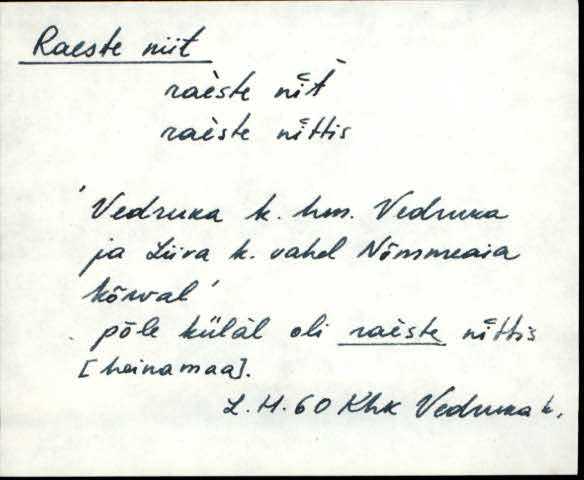 Raeste niit
raèste nìt̀
raèste nìttis
'Vedruka k. hm. Vedruka
ja Liiva k. vahel Nõmmeaia
kõrval'
põle külàl oli raèste nìttis
[heinamaa].
L. H. 60 Khk Vedruka k.